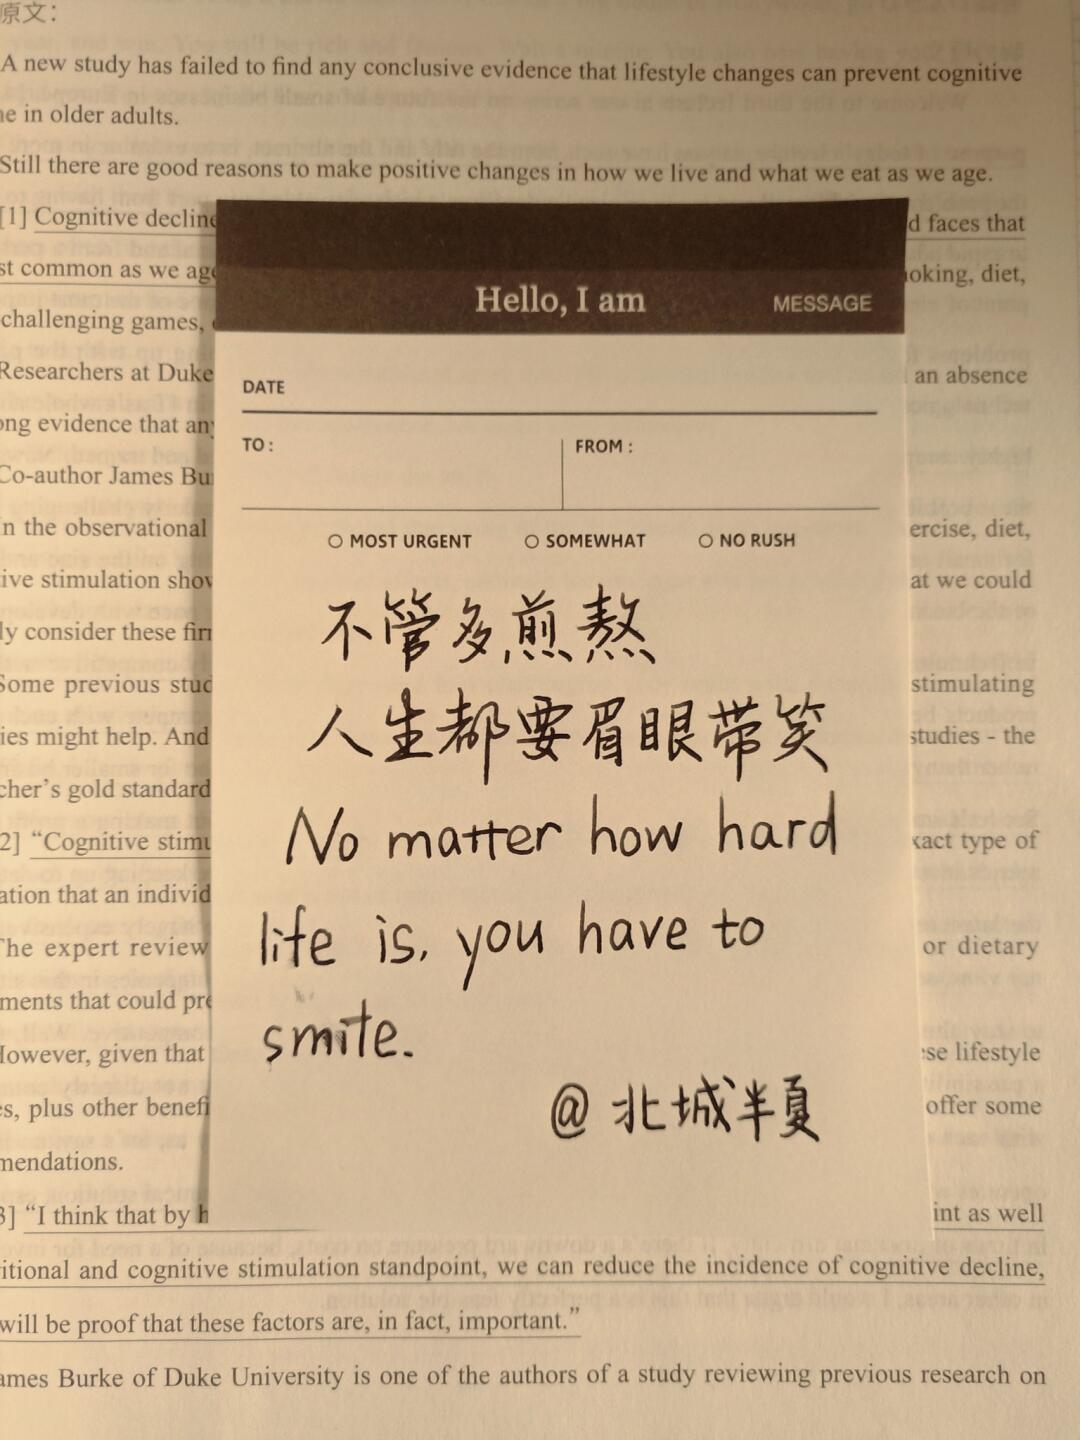 原文：
A new study has failed to find any conclusive evidence that lifestyle changes can prevent cognitive
in older adults.
Still there are good reasons to make positive changes in how we live and what we eat as we age.
[1] Cognitive decline faces that
common as we age diet,
challenging games,
Researchers at Duke an absence
evidence that
Co-author James
the observational diet,
stimulation at we could
consider these
Some previous stimulating
might help. And studies - the
gold standard
“Cognitive type of
that an individ
The expert review or dietary
that could
However, given that lifestyle
plus other offer some
“I think that by as well
and cognitive stimulation standpoint, we can reduce the incidence of cognitive decline,
will be proof that these factors are, in fact, important.”
James Burke of Duke University is one of the authors of a study reviewing previous research on
Hello, I am MESSAGE
DATE
TO : FROM :
MOST URGENT SOMEWHAT NO RUSH
不管多煎熬
人生都要眉眼带笑
No matter how hard
life is, you have to
smite.
@北城半夏